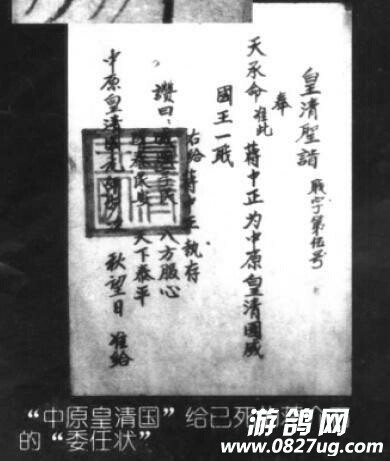 皇清聖諳 職字第伍号
奉
天承命准此 蔣中正为中原皇清國威
國王一職
右给蔣中正執存
讚曰： 八方服心
天下泰平
中原皇清國元 秋望日 准给
“中原皇清国”给已死
的“委任状”
游鸽网
www.0827ug.com